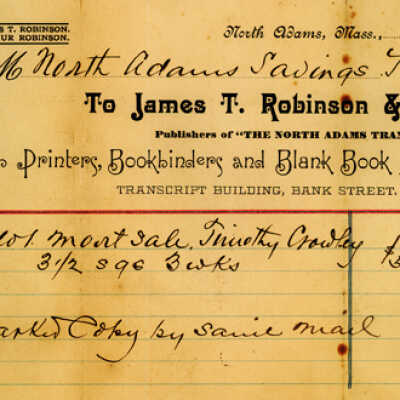 S T. ROBINSON.
UR ROBINSON.
North Adams, Mass.,
M North Adams Savings
To James T. Robinson &
Publishers of "THE NORTH ADAMS TRAN
Printers, Bookbinders and Blank Book
TRANSCRIPT BUILDING, BANK STREET.
Mort Sale, Timothy Crowley $
3 1/2 sqs 3 wks
arked Copy by same mail